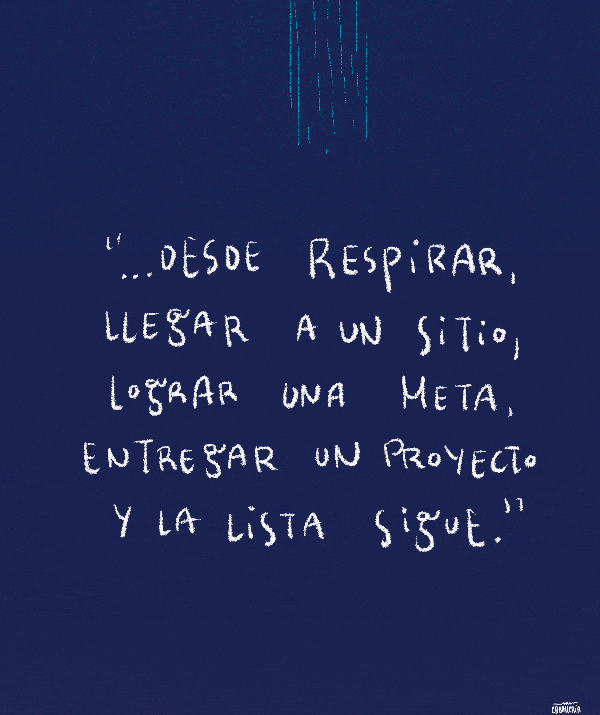 "...DESDE RESPIRAR,
LLEGAR A UN SITIO,
LOGRAR UNA META,
ENTREGAR UN PROYECTO
Y LA LISTA SIGUE."